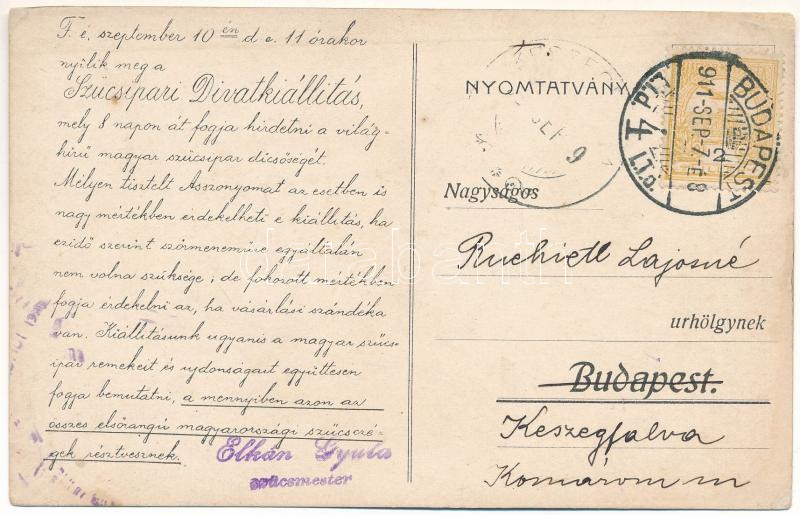 F. é. szeptember 10 én d. e. 11 órakor
nyilik meg a
Szücsipari Divatkiállitás,
mely 8 napon át fogja hirdetni a világ-
hirü magyar szücsipar dicsőségét.
Mélyen tisztelt Asszonyomat az esetben is
nagy mértékben érdekelheti e kiállitás, ha
ezidő szerint szörmeneműre egyáltalán
nem volna szüksége; de fokozott mértékben
fogja érdekelni az, ha vásárlási szándéka
van. Kiállitásunk ugyanis a magyar szücs-
ipar remekeit és ujdonságait együttesen
fogja bemutatni, a mennyiben azon az
összes elsőrangú magyarországi szücscé-
gek résztvesznek.
Elkán Gyula
szücsmester
NYOMTATVÁNY
BUDAPEST
911-SEP-7. E8
2
SEP 9
Nagyságos
Lajosné
urhölgynek
Budapest.
Keszegfalva
Komárom m